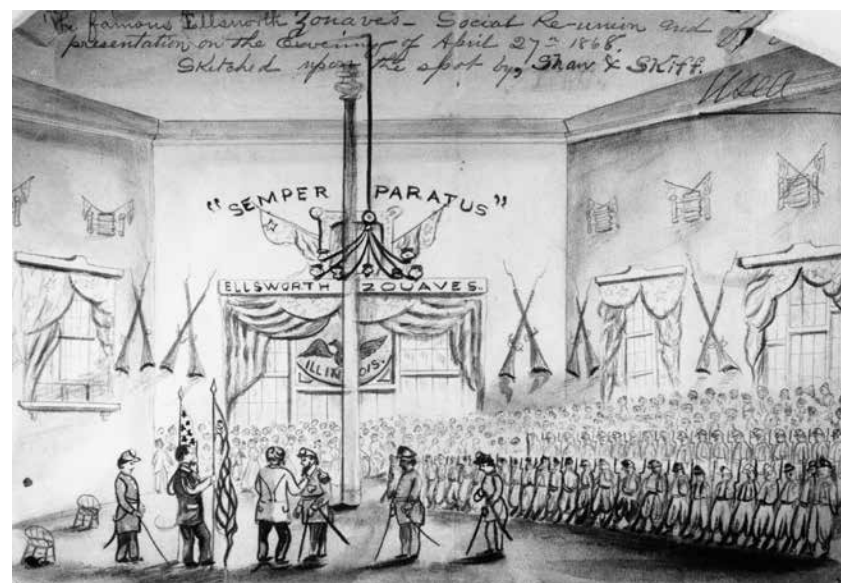 The famous Ellsworth Zouaves – Social Re-union and
presentation on the Evening of April 27th 1868.
Sketched upon the spot by, Shaw & Skiff.
"SEMPER PARATUS"
ELLSWORTH ZOUAVES.
ILLINOIS.